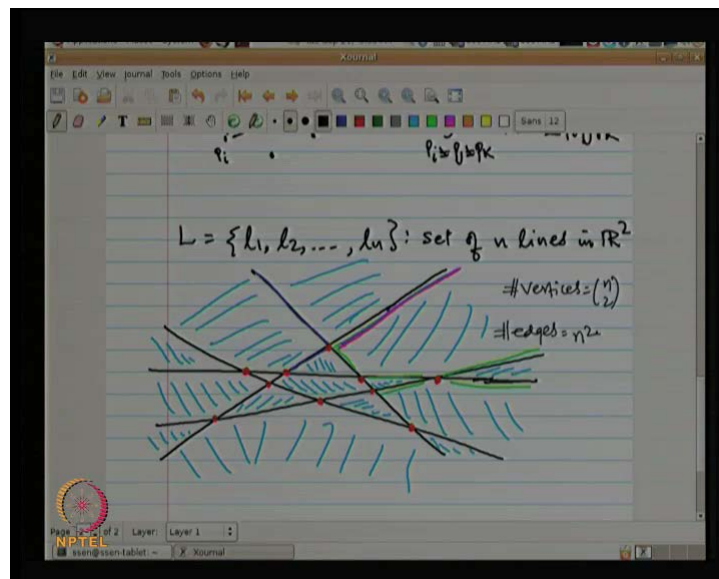 Xournal
File Edit View Journal Tools Options Help
T Sans 12
Pi
L = {l1, l2, ..., ln}: set of n lines in ℝ²
#vertices = (n 2)
#edges = n²
Page of 2 Layer: Layer 1
ssen@ssen-tablet: ~ Xournal
NPTEL